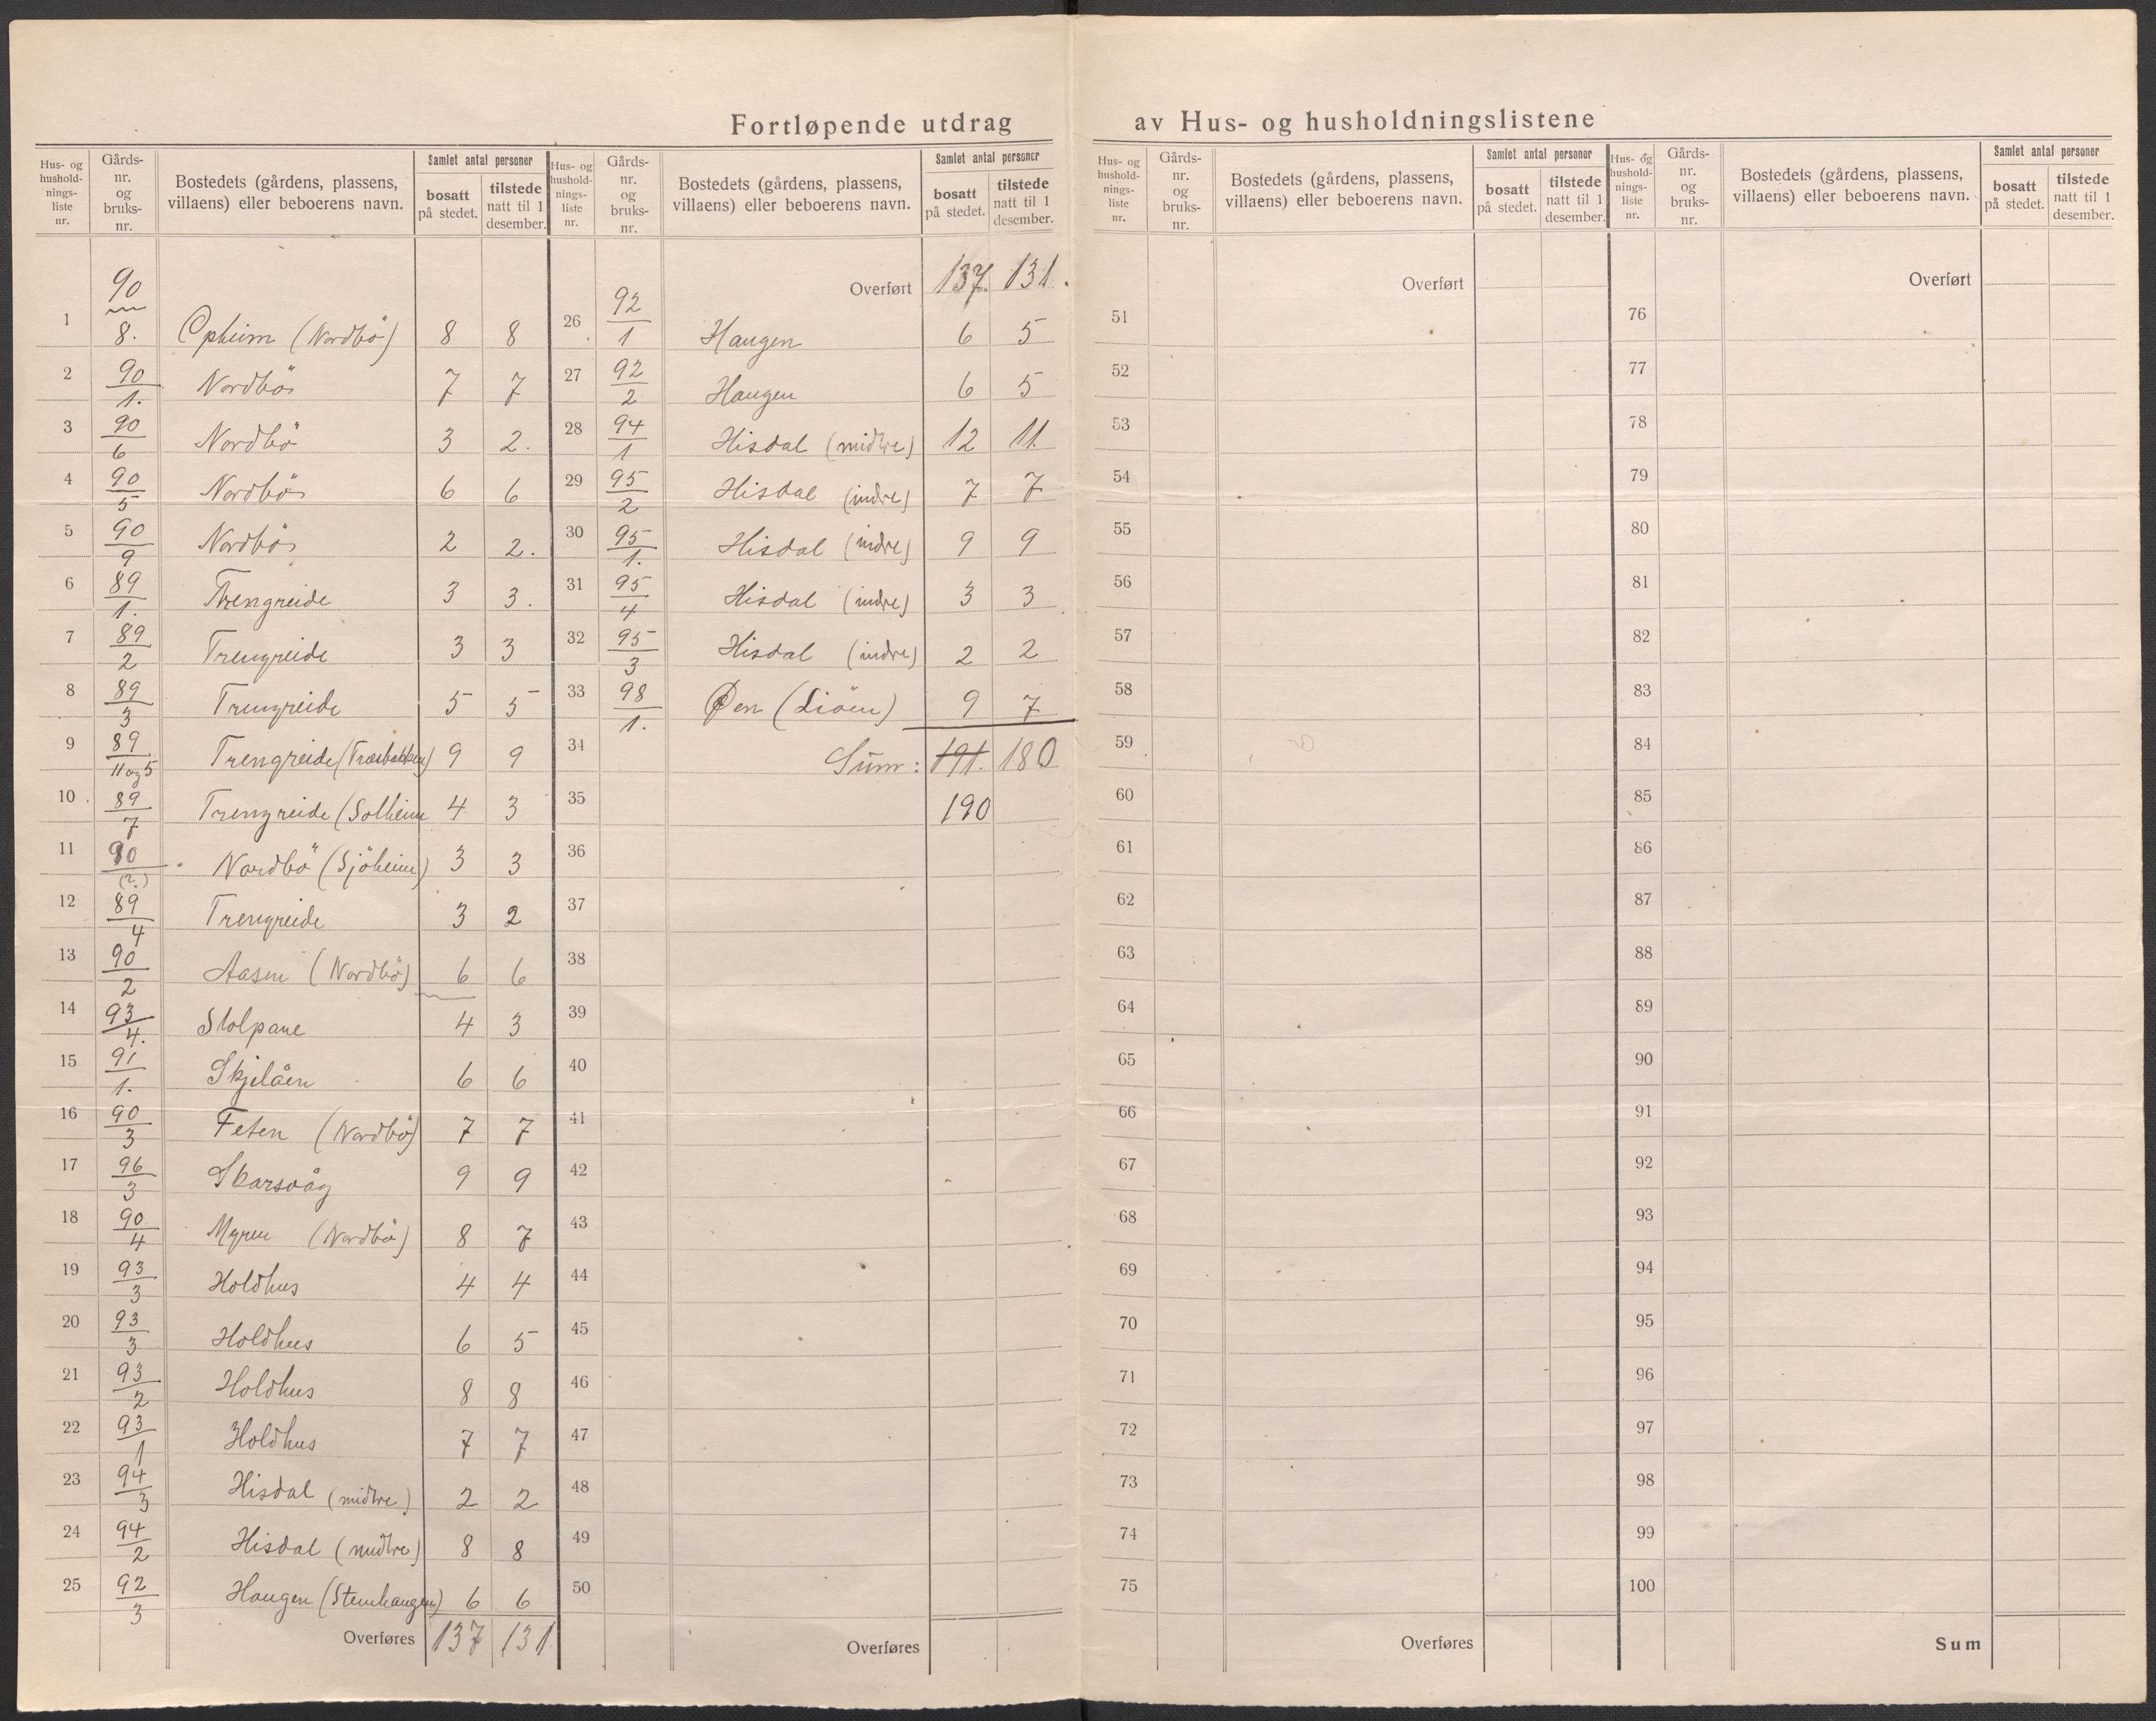 Fortløpende utdrag av Hus- og husholdningslistene
Hus- og hushold-nings-liste nr. Gårds-nr. og bruks-nr. Bostedets (gårdens, plassens, villaens) eller beboerens navn. Samlet antal personer bosatt på stedet. tilstede natt til 1 desember.
1 90/8. Opheim (Nordbö) 8 8
2 90/1. Nordbö 7 7
3 90/6 Nordbö 3 2.
4 90/5 Nordbö 6 6
5 90/9 Nordbö 2 2.
6 89/1. Trengreide 3 3.
7 89/2 Trengreide 3 3
8 89/3 Trengreide 5 5
9 89/11 og 5 Trengreide (Træsbakken) 9 9
10. 89/7 Trengreide (Solheim 4 3
11 90/(2.) Nordbö (Sjöheim) 3 3
12 89/4 Trengreide 3 2
13 90/2 Aasen (Nordbö) 6 6
14 93/4. Stolpane 4 3
15 91/1. Skjelåen 6 6
16 90/3 Feten (Nordbö) 7 7
17 96/3 Skarsvåg 9 9
18 90/4 Myren (Nordbö) 8 7
19 93/3 Holdhus 4 4
20 93/3 Holdhus 6 5
21 93/2 Holdhus 8 8
22 93/1 Holdhus 7 7
23 94/3 Hisdal (midtre) 2 2
24 94/2 Hisdal (midtre) 8 8
25 92/3 Haugen (Stenhaugen) 6 6
Overføres 137 131
Hus- og hushold-nings-liste nr. Gårds-nr. og bruks-nr. Bostedets (gårdens, plassens, villaens) eller beboerens navn. Samlet antal personer bosatt på stedet. tilstede natt til 1 desember.
Overført 137. 131.
26 92/1 Haugen 6 5
27 92/2 Haugen 6 5
28 94/1 Hisdal (midtre) 12 11.
29 95/2 Hisdal (indre) 7 7
30 95/1. Hisdal (indre) 9 9
31 95/4 Hisdal (indre) 3 3
32 95/3 Hisdal (indre) 2 2
33 98/1. Øen (Liöen) 9 7
34 Sum: 191. 180
35 190
36
37
38
39
40
41
42
43
44
45
46
47
48
49
50
Overføres
Hus- og hushold-nings-liste nr. Gårds-nr. og bruks-nr. Bostedets (gårdens, plassens, villaens) eller beboerens navn. Samlet antal personer bosatt på stedet. tilstede natt til 1 desember.
Overført
51
52
53
54
55
56
57
58
59
60
61
62
63
64
65
66
67
68
69
70
71
72
73
74
75
Overføres
Hus- og hushold-nings-liste nr. Gårds-nr. og bruks-nr. Bostedets (gårdens, plassens, villaens) eller beboerens navn. Samlet antal personer bosatt på stedet. tilstede natt til 1 desember.
Overført
76
77
78
79
80
81
82
83
84
85
86
87
88
89
90
91
92
93
94
95
96
97
98
99
100
Sum